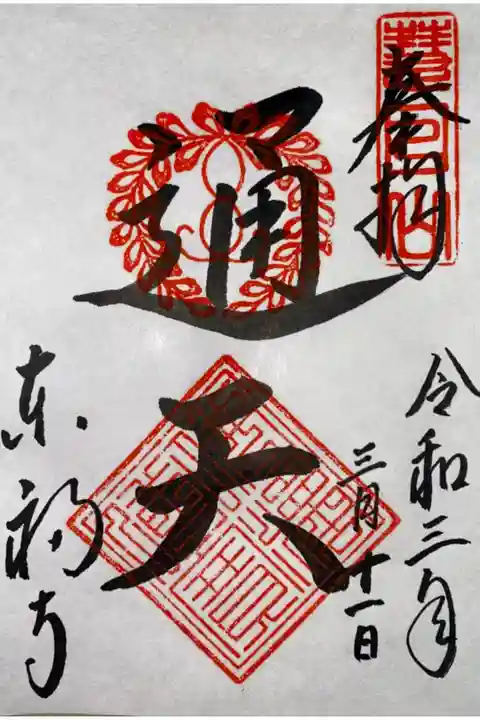 慧日山
奉拝
令和三年
三月十一日
通天
東福寺